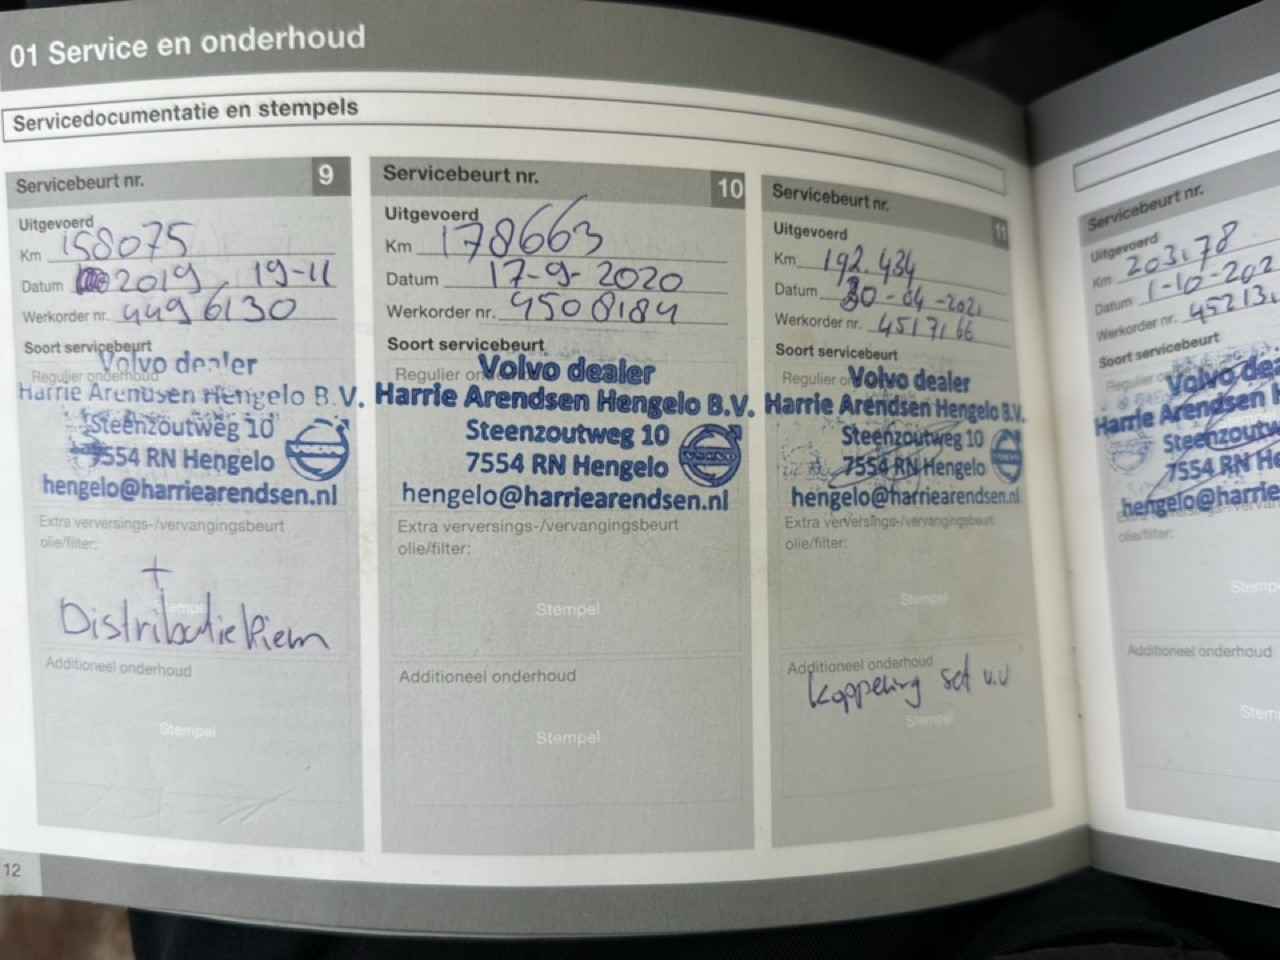 01 Service en onderhoud
Servicedocumentatie en stempels
Servicebeurt nr. 9
Uitgevoerd
Km 158075
Datum 2019 19-11
Werkorder nr. 4496130
Soort servicebeurt
Regulier onderhoud
Volvo dealer
Harrie Arendsen Hengelo B.V.
Steenzoutweg 10
7554 RN Hengelo
hengelo@harriearendsen.nl
Extra verversings-/vervangingsbeurt
olie/filter:
+
Stempel
Distributieriem
Additioneel onderhoud
Stempel
12
Servicebeurt nr. 10
Uitgevoerd
Km 178663
Datum 17-9-2020
Werkorder nr. 4508184
Soort servicebeurt
Regulier
Volvo dealer
Harrie Arendsen Hengelo B.V.
Steenzoutweg 10
VOLVO
7554 RN Hengelo
hengelo@harriearendsen.nl
Extra verversings-/vervangingsbeurt
olie/filter:
Stempel
Additioneel onderhoud
Stempel
Servicebeurt nr. 11
Uitgevoerd
Km 192.434
Datum 30-04-2021
Werkorder nr. 4517166
Soort servicebeurt
Regulier
Volvo dealer
Harrie Arendsen Hengelo B.V.
Steenzoutweg 10
7554 RN Hengelo
hengelo@harriearendsen.nl
Extra verversings-/vervangingsbeurt
olie/filter:
Stempel
Additioneel onderhoud
koppeling set v.v
Stempel
Servicebeurt nr.
Uitgevoerd
Km 203.78
Datum 1-10-202
Werkorder nr. 45213
Soort servicebeurt
Regulier
Volvo dea
Harrie Arendsen H
Steenzoutw
7554 RN He
hengelo@harrie
olie/filter:
Stemp
Additioneel onderhoud
Stem